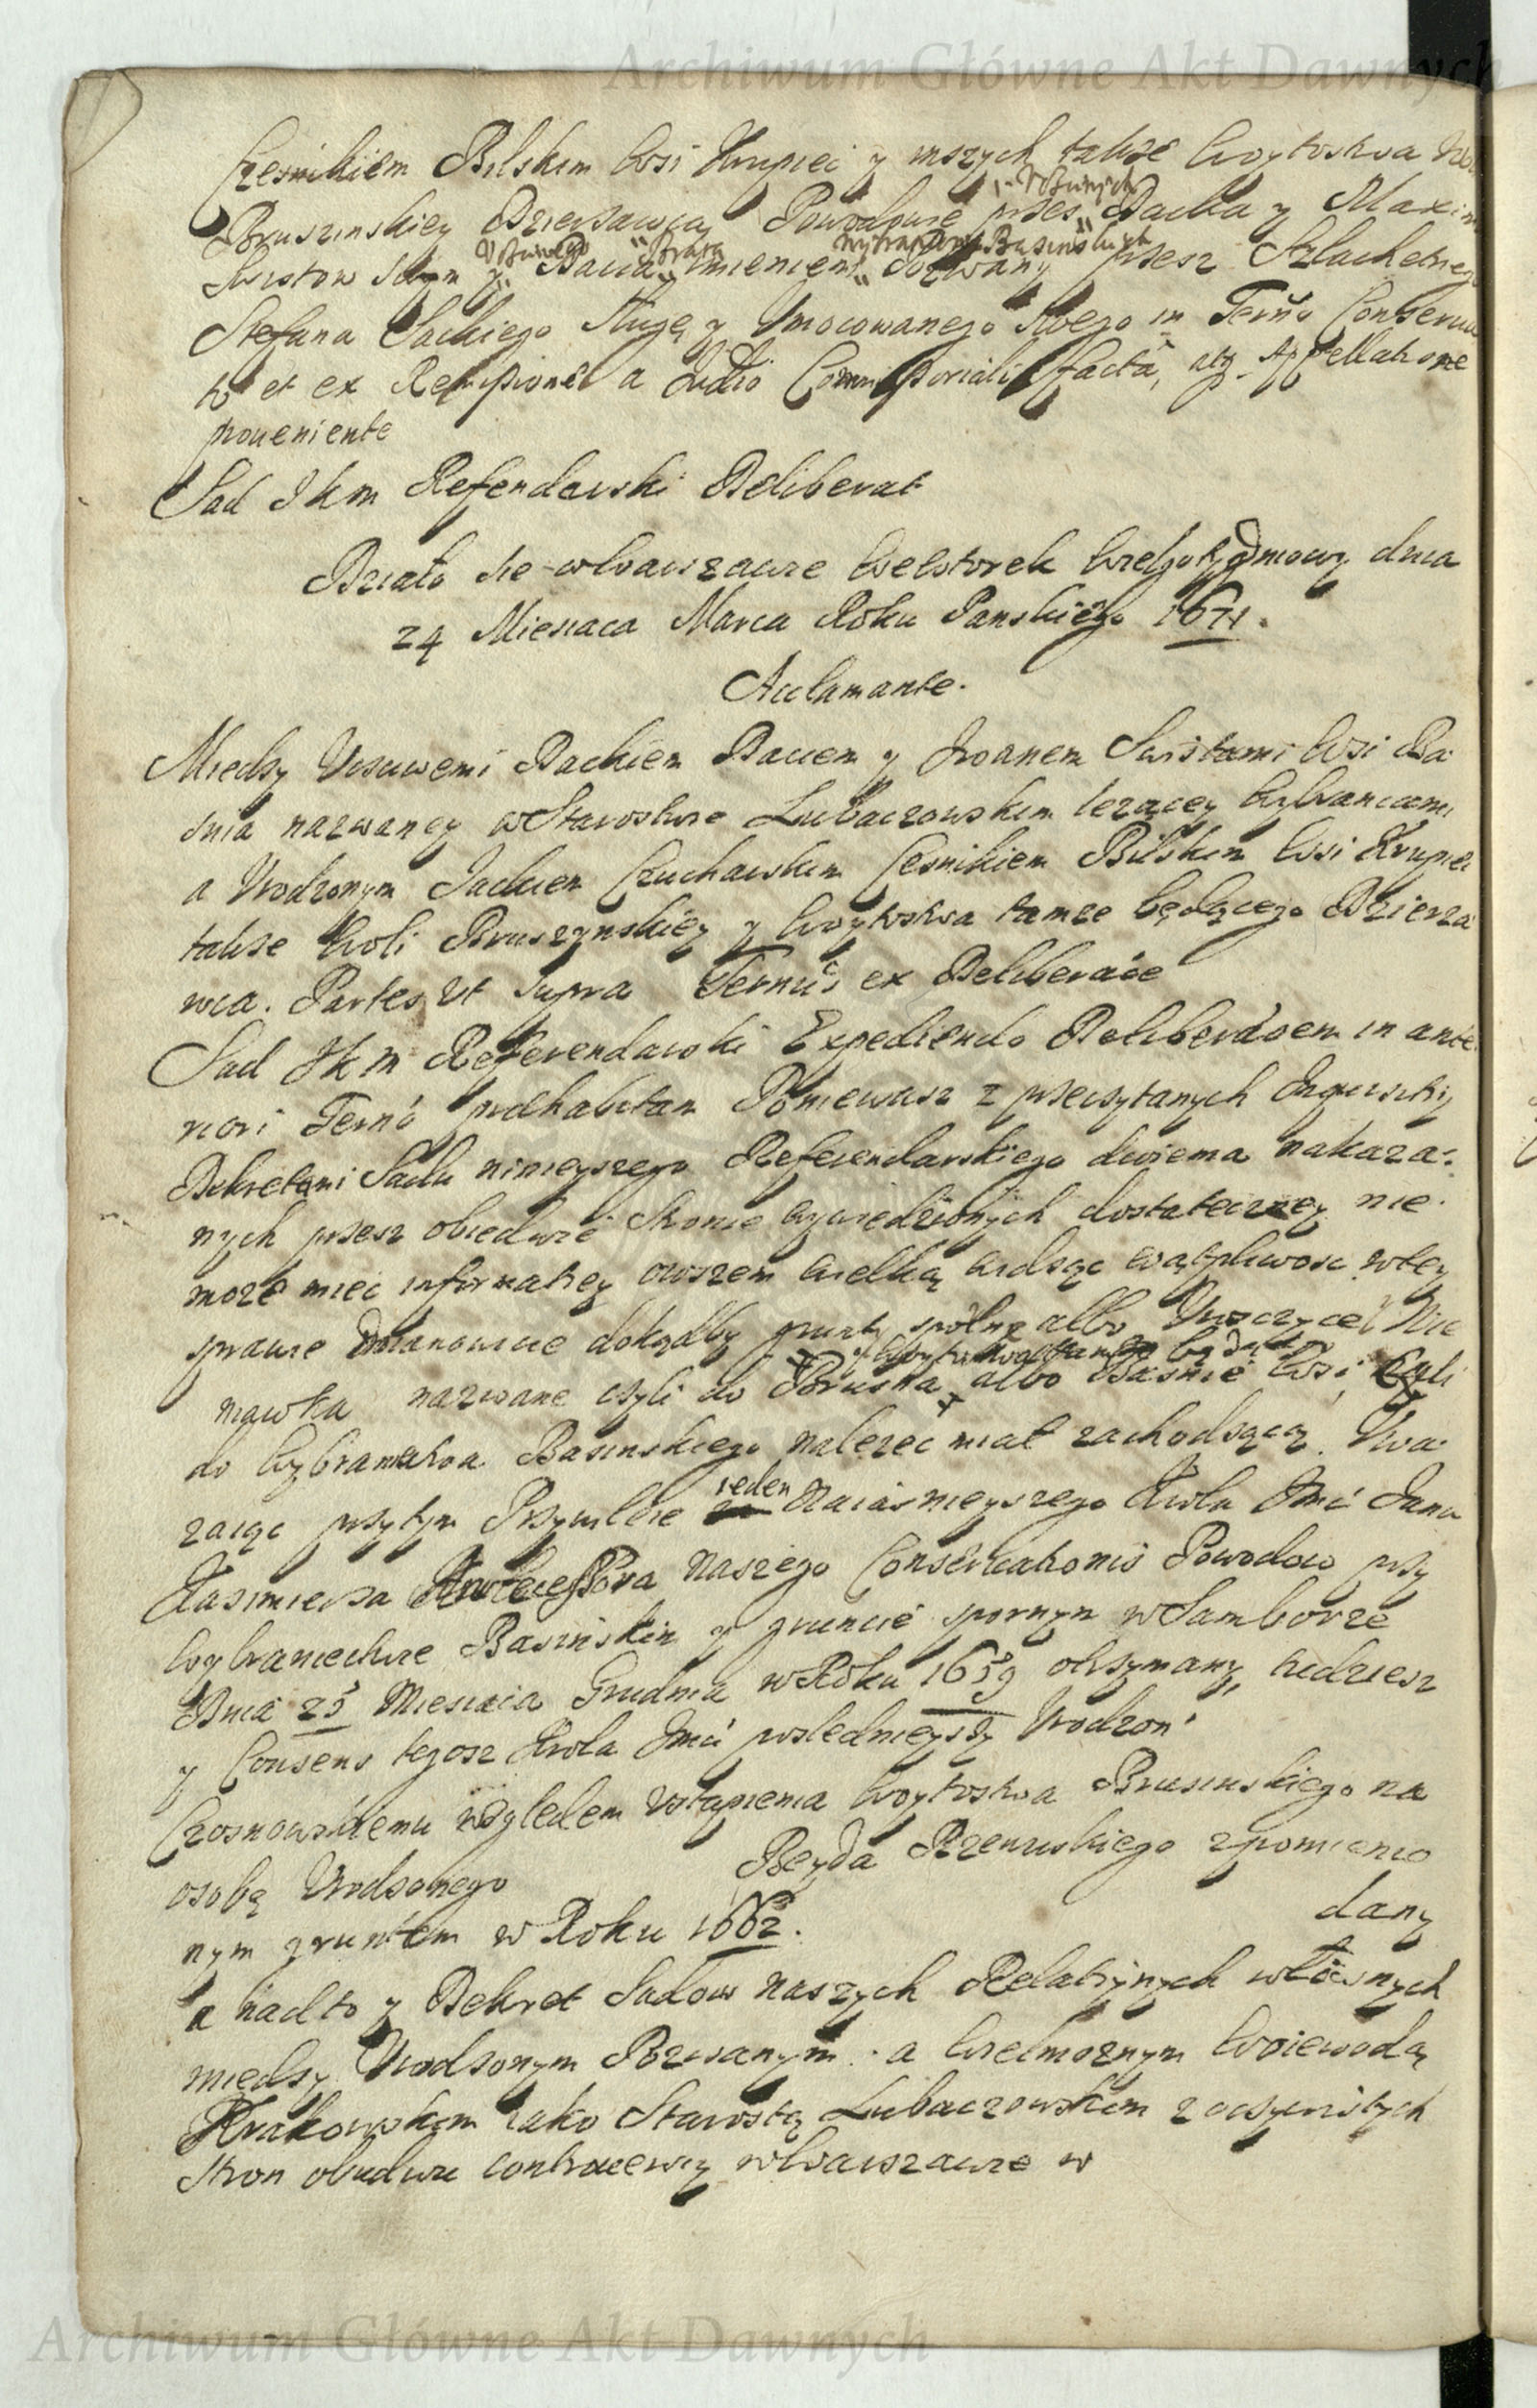 Archiwum Główne Akt Dawnych
Czesnikiem Bilskim wsi Krupiei y inszych także Woytostwa Wo
Bruszinskiey Dzierzawcą Powodowie przes Vczciwych Dacka y Maxim
Swistow y Vczciwego Bacia Brata imieniem Wybrancow Basinskich pozwany przesz Szlachetnego
Stefana Sackiego Sługę y Vmocowanego Swego in Termo Conserva
to et ex Remissione a Judio Commissoriali facta, atq Appellatione
proueniente
Sad J K M Referendarski Deliberat
Działo sie w Warszawie we Wtorek Wielgotygdniowy dnia
24 Miesiaca Marca Roku Panskiego 1671.
Acclamante.
Miedzy Vcsciwemi Dackiem Baciem y Iwanem Swistami wsi Ba
snia nazwaney w Starostwie Lubaczowskim lezącey wybrancami
a Vrodzonym Jackiem Czesnikiem Bilskim wsi Krupiei
takze Woli Bruszynskiey y Woytostwa tamze będącego Dzierza
wca. Partes Vt supra Ternus ex Deliberaoe
Sad J K M Referendarski Expediendo Deliberaoem in ante
riori Terno praehabitam Poniewasz z przeczytanych Inquisitiy
Dekretami Sadu ninieyszego Referendarskiego dwiema nakaza-
nych przesz obiedwie Stronie wywiedzionych dostateczney nie
może miec informatiey owszem wielką widząc wątpliwosc wtey
sprawie mianowicie dokądby grunty spólne albo Nie
mawka nazwane czyli do Brusna albo Basnie wsi, czyli
do Wybranstwa Basinskiego nalezec miał zachodzącą. Vwa
zaiąc przytym Przywileie ieden Naiasnieyszego Krola Jmci Jana
Kazimierza Antecessora Naszego Conseruationis Powodow przy
Wybraniectwie Basinskim y gruncie spornym w Samborze
Dnia 25 Miesiaca Grudnia w Roku 1659 otrzymany, tudziesz
y Consens tegosz Krola Jmci poslednieyszy Vrodzon
Czosnowskiemu wzgledem Vstąpienia Woytostwa Brusinskiego na
osobę Vrodzonego Beyda Rzewuskiego zpomienio
nym gruntem w Roku 1662. dany
a nadto y Dekret Sadow naszych Relatiynych własnych
miedzy Vrodzonym Pozwanym a Wielmoznym Woiewodą
Krakowskim iako Starostą Lubaczowskim z oczywistych
Stron obudwu controversiy w Warszawie w
Archiwum Główne Akt Dawnych